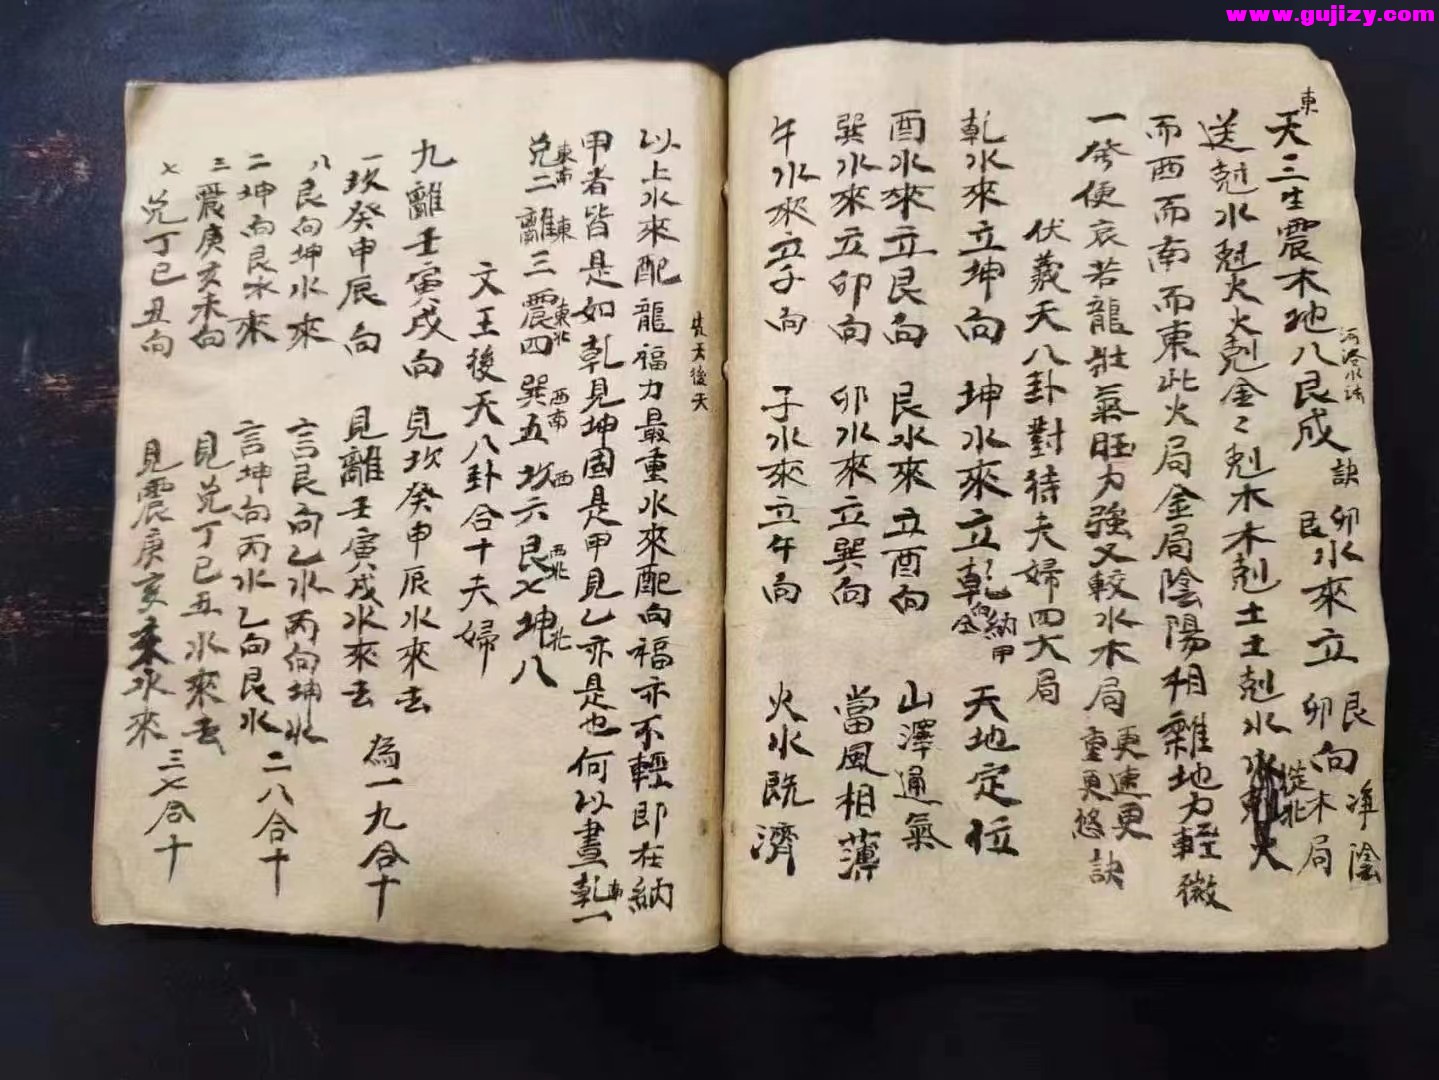 www.gujizy.com
東
天三生震木地八艮成 訣 卯艮水來立艮卯向 淨陰木局
河洛水法
送剋水剋火火剋金金剋木木剋土土剋水 從北
而西而南而東此火局金局陰陽相雜地力輕微
一發便衰若龍壯氣旺力強又較水木局更速更重更悠 訣
伏羲天八卦對待夫婦四大局
乾水來立坤向 坤水來立乾向 納甲全 天地定位
酉水來立艮向 艮水來立酉向 山澤通氣
巽水來立卯向 卯水來立巽向 當風相薄
午水來立子向 子水來立午向 火水既濟
先天後天
以上水來配龍福力最重水來配向福亦不輕即在納
甲者皆是如乾見坤固是甲見乙亦是也何以晝乾南一
兌東南二離東三震東北四巽西南五坎西六艮西北七坤北八
文王後天八卦合十夫婦
九離壬寅戌向 見坎癸申辰水來去 為一九合十
一坎癸申辰向 見離壬寅戌水來去
八艮向坤水來 言艮向乙水丙向坤水 二八合十
二坤向艮水來 言坤向丙水乙向艮水
三震庚亥未向 見兌丁巳丑水來去
七兌丁巳丑向 見震庚亥未水來 三七合十